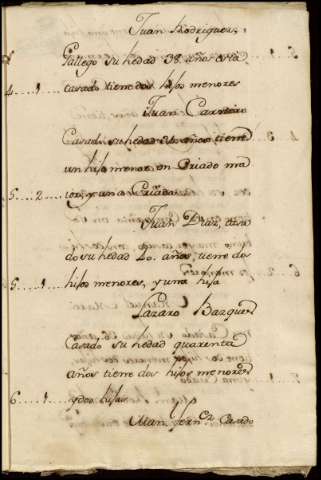 Juan Rodriguez,
Gallego su hedad 38. años esta
4....1.... casado tiene dos hijos menores
Juan Carneiro
Casado su hedad años tiene
un hijo menor, un Criado ma
5....2.... ior, y una Criada
Juan Diaz, casa
do su hedad 40. años, tiene dos
5....1.... hijos menores, y una hija
Lazaro Bazquez
Casado su hedad quarenta
años tiene dos hijos menores
6....1.... y dos hijas
Juan frnz Casado